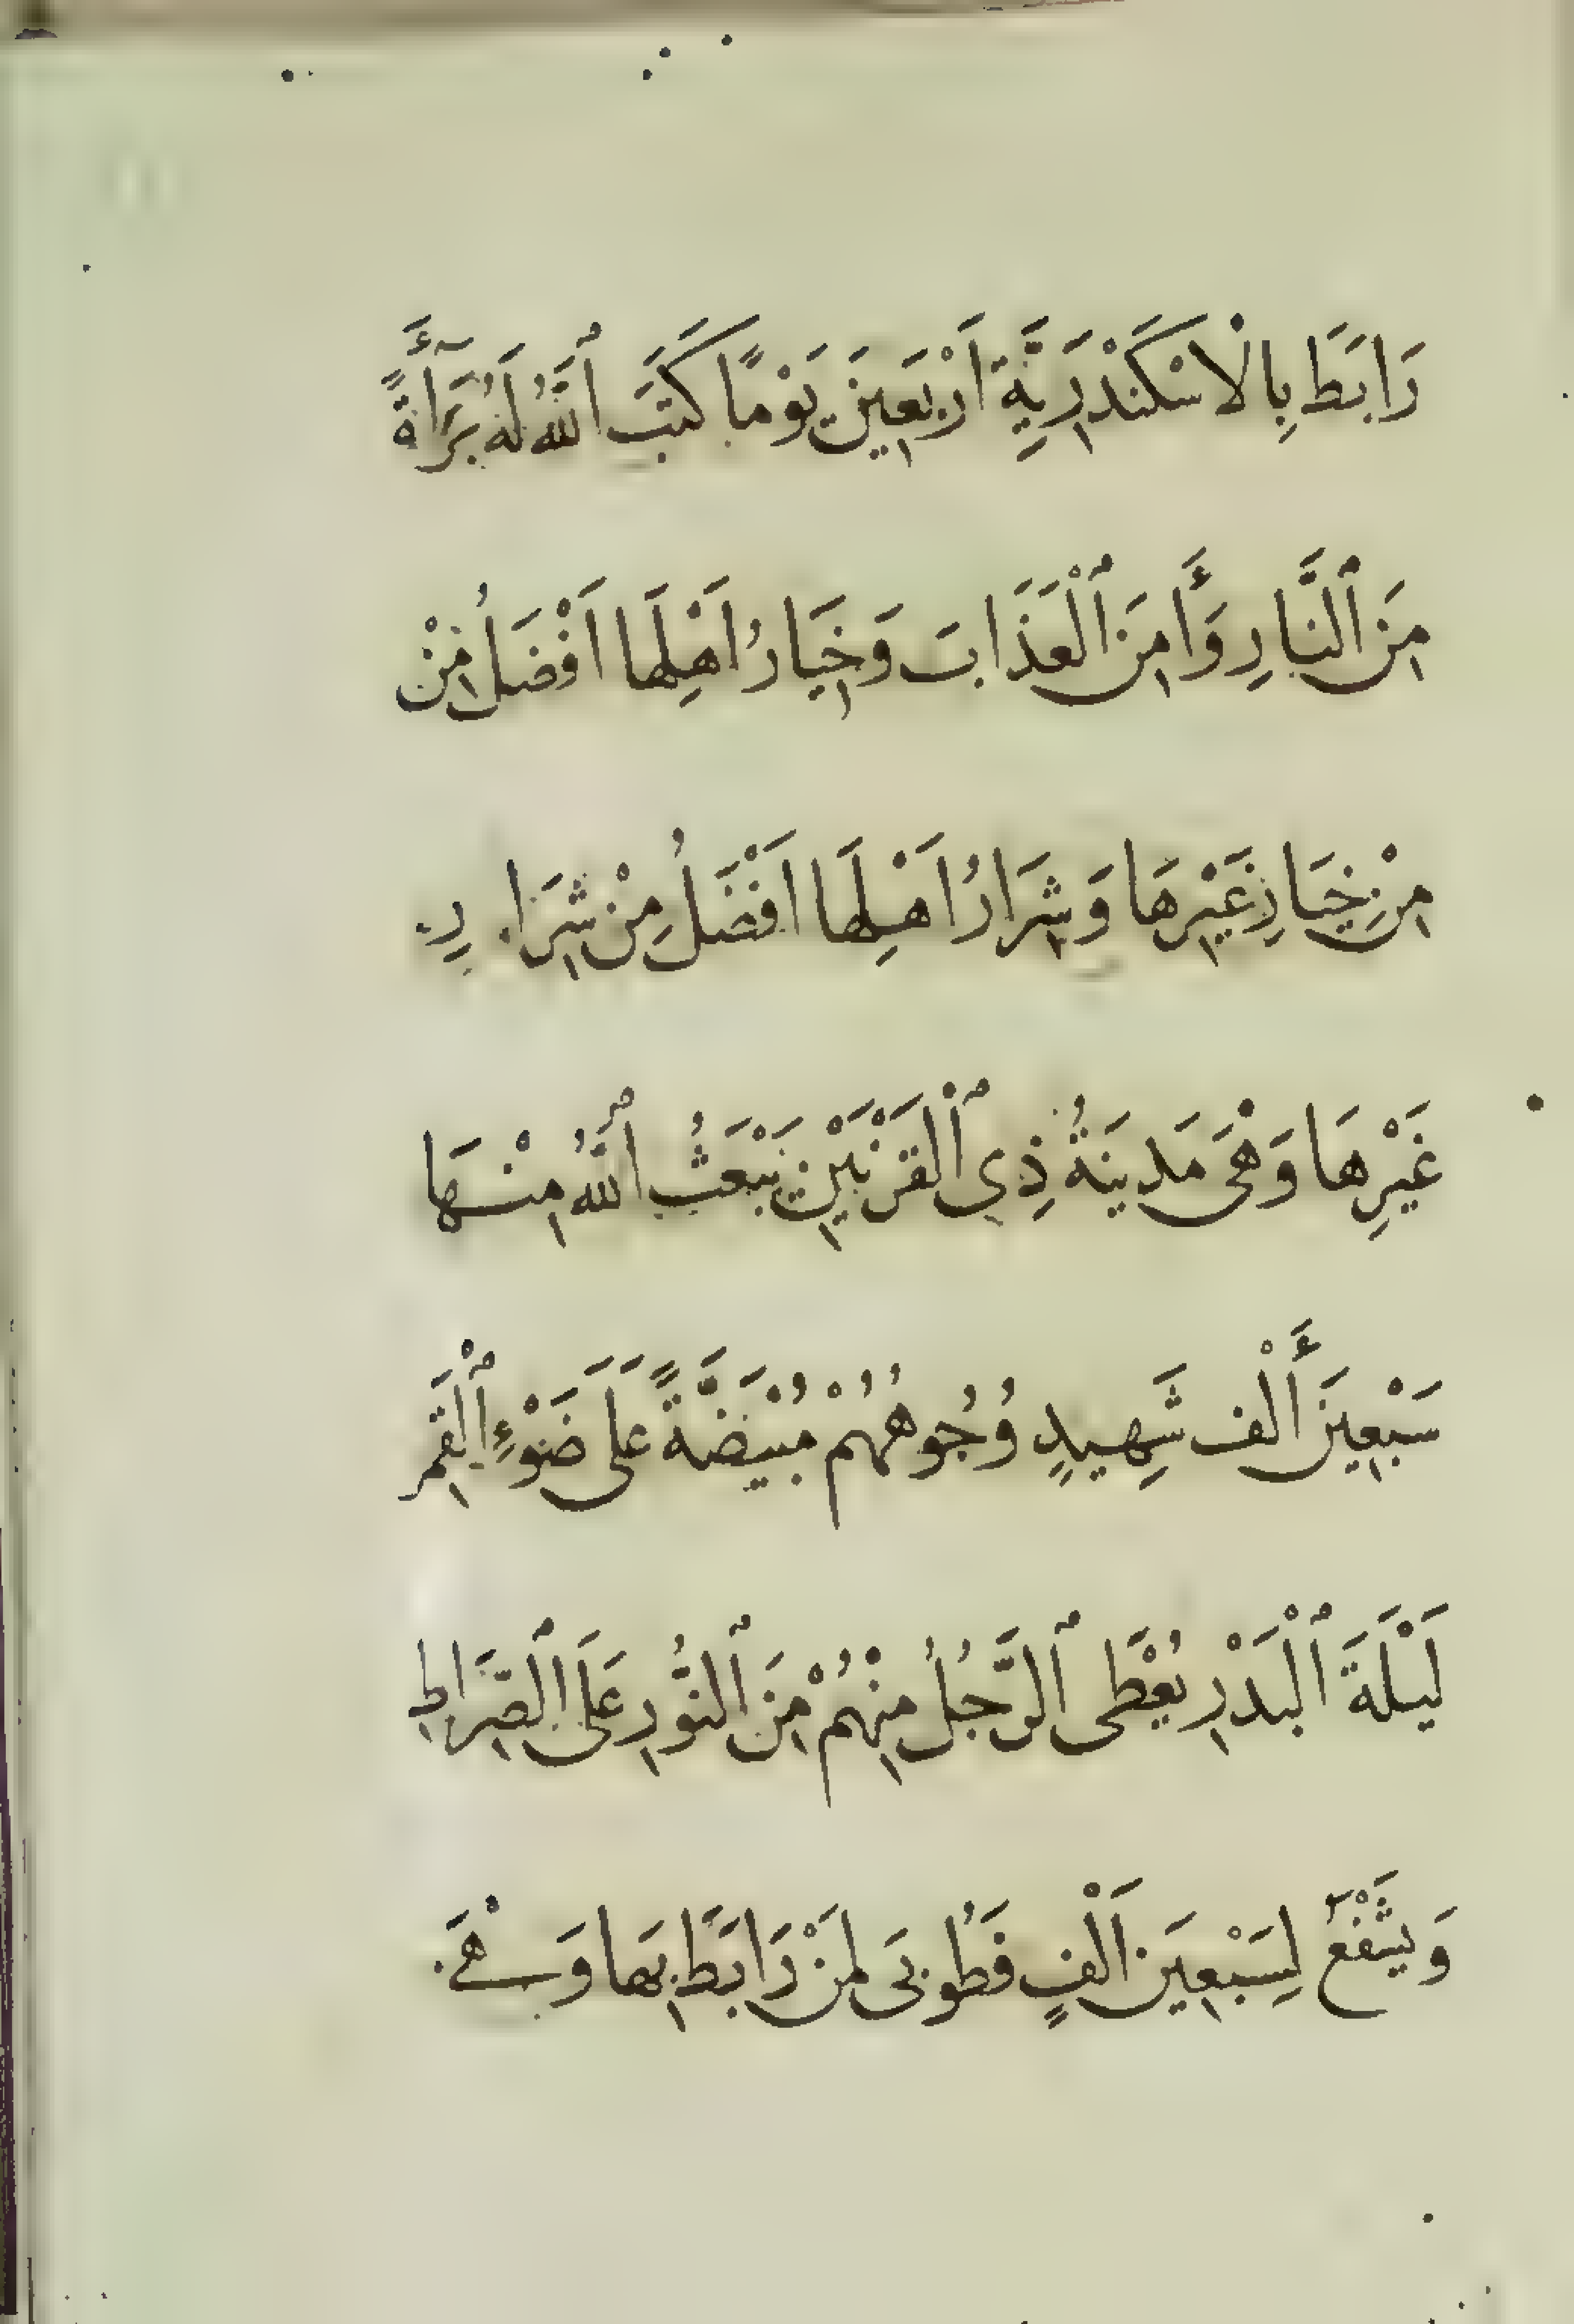 رَابَطَ بِالْاسْكَنْدَرِيَّةِ اَرْبَعِينَ يَوْمًا كَتَبَ ٱللَّهُ لَهُ بَرَآأَةً
مِنَ ٱلنَّارِ وَأَمِنَ ٱلْعَذَابَ وَخِيَارُ اَهْلِهَا اَفْضَلُ مِنْ
مِنْ خِيَارِ غَيْرِهَا وَشِرَارُ اَهْلِهَا اَفْضَلُ مِنْ شِرَارِ
غَيْرِهَا وَهْىَ مَدِينَةُ ذِي ٱلْقَرْنَيْنِ يَبْعَثُ ٱللَّهُ مِنْهَا
سَبْعِينَ أَلْف شَهِيدٍ وُجُوهُهُمْ مُبْيَضَّةً عَلَى ضَوْءِ ٱلْقَمَرِ
لَيْلَةَ ٱلْبَدْرِ يُعْطَى ٱلرَّجُلُ مِنْهُمْ مِنَ ٱلنُّورِ عَلَى ٱلصِّرَاطِ
وَيَشْفَعُ لِسَبْعِينَ اَلْفٍ فَطُوبَى لِمَنْ رَابَطَ بِهَا وَهْىَ